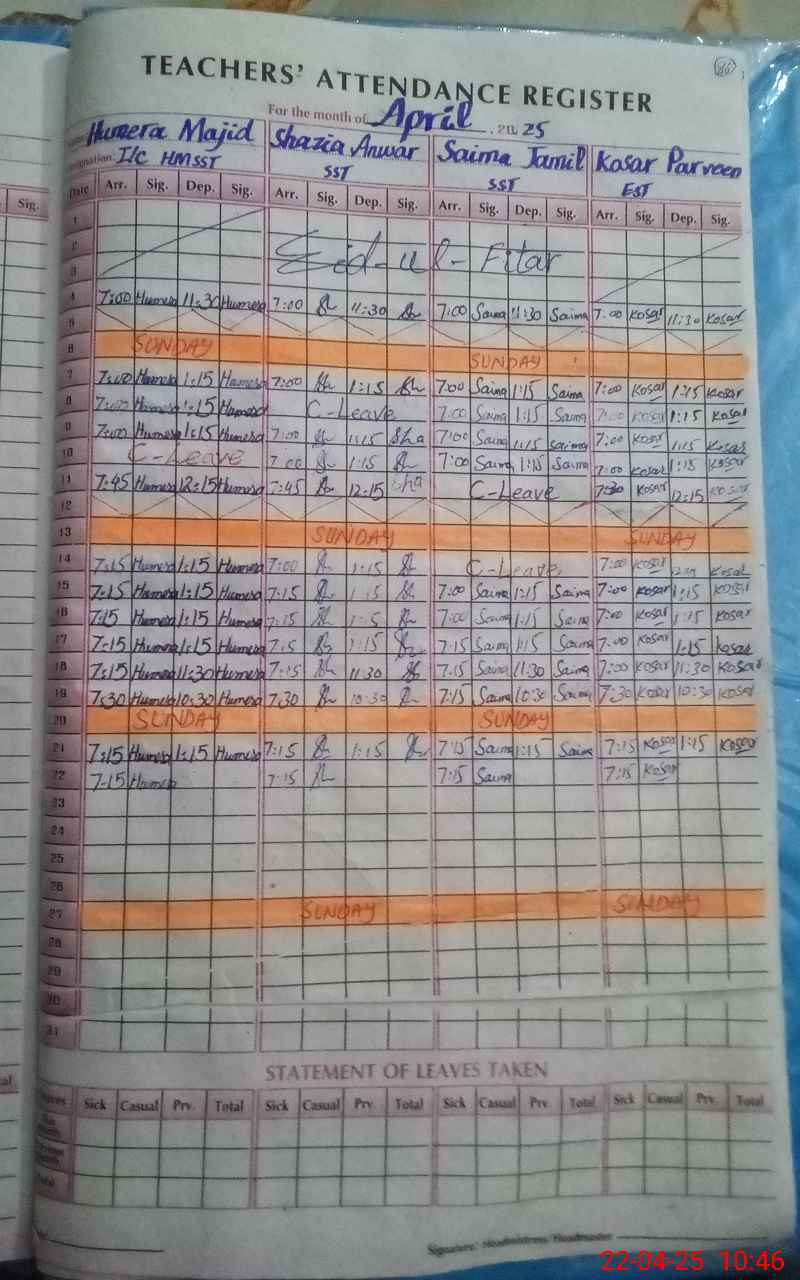 86
TEACHERS' ATTENDANCE REGISTER
For the month of April, 2025
Humera Majid Shazia Anwar Saima Jamil Kosar Parveen
Designation: I/C HMSST SST SST EST
Date Arr. Sig. Dep. Sig. Arr. Sig. Dep. Sig. Arr. Sig. Dep. Sig. Arr. Sig. Dep. Sig.
1
2 Eid-ul-Fitar
3
4 7:00 Humera 11:30 Humera 7:00 11:30 7:00 Saima 11:30 Saima 7:00 Kosar 11:30 Kosar
5
6 SUNDAY SUNDAY
7 7:00 Humera 1:15 Humera 7:00 Sh 1:15 Sh 7:00 Saima 1:15 Saima 7:00 Kosar 1:15 Kosar
8 7:00 Humera 1:15 Humera C-Leave 7:00 Saima 1:15 Saima 7:00 Kosar 1:15 Kosar
9 7:00 Humera 1:15 Humera 7:00 1:15 Sha 7:00 Saima 1:15 Saima 7:00 Kosar 1:15 Kosar
10 C-Leave 7:00 1:15 7:00 Saima 1:15 Saima 7:00 Kosar 1:15 Kosar
11 7:45 Humera 12:15 Humera 7:45 12:15 Sha C-Leave 7:30 Kosar 12:15 Kosar
12
13 SUNDAY SUNDAY
14 7:15 Humera 1:15 Humera 7:00 1:15 C-Leave 7:00 Kosar Kosar
15 7:15 Humera 1:15 Humera 7:15 1:15 7:00 Saima 1:15 Saima 7:00 Kosar 1:15 Kosar
16 7:15 Humera 1:15 Humera 7:15 1:15 7:00 Saima 1:15 Saima 7:00 Kosar 1:15 Kosar
17 7-15 Humera 1:15 Humera 7:15 1:15 7:15 Saima 1:15 Saima 7:00 Kosar 1:15 Kosar
18 7:15 Humera 11:30 Humera 7:15 11:30 7:15 Saima 11:30 Saima 7:00 Kosar 11:30 Kosar
19 7:30 Humera 10:30 Humera 7.30 10:30 7:15 Saima 10:30 Saima 7:30 Kosar 10:30 Kosar
20 SUNDAY SUNDAY
21 7:15 Humera 1:15 Humera 7:15 1:15 7:15 Saima 1:15 Saima 7:15 Kosar 1:15 Kosar
22 7-15 Humera 7:15 7:15 Saima 7:15 Kosar
23
24
25
26
27 SUNDAY SUNDAY
28
29
30
31
STATEMENT OF LEAVES TAKEN
Sick Casual Prv. Total Sick Casual Prv. Total Sick Casual Prv. Total Sick Casual Prv. Total
Signature: Headmistress/Headmaster
22-04-25 10:46